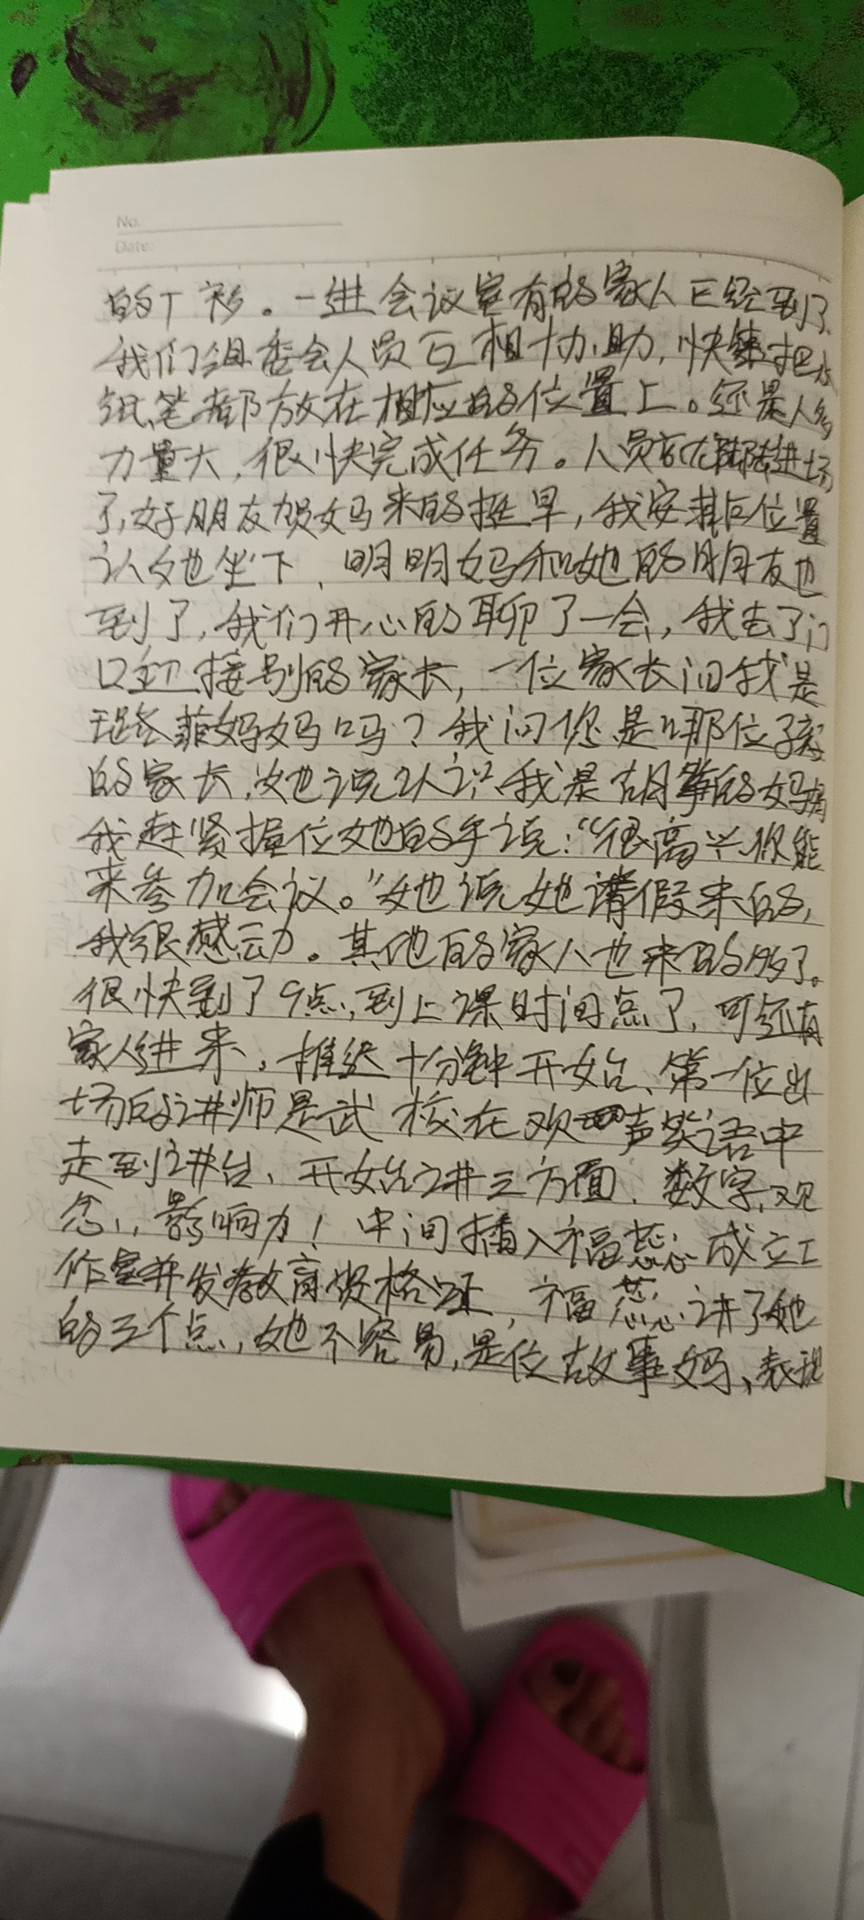 No.
Date:
的T衫。一进会议室有的家人已经到了.
我们组委会人员互相协助,快速把水
纸、笔都放在相应的位置上。还是人多
力量大,很快完成任务。人员陆陆进场
了,好朋友贺妈来的挺早,我安排位置
认她坐下,明明妈和她的朋友也
到了,我们开心的聊了一会,我去了门
口迎接别的家长,一位家长问我是
菲妈妈吗?我问您是哪位孩
的家长,她说认识,我是胡的妈妈
我赶紧握位她的手说:“很高兴你能
来参加会议。”她说她请假来的,
我很感动。其他的家人也来的多了。
很快到了9点,到上课时间点了,可还有
家人进来,推迟十分钟开始、第一位出
场的讲师是武校在欢声笑语中
走到讲台、开始讲三方面、数字、观
念、影响力!中间插入福蕊成立工
作室并发教育资格证,福蕊讲了她
的三个点,她不容易,是位故事妈、表现